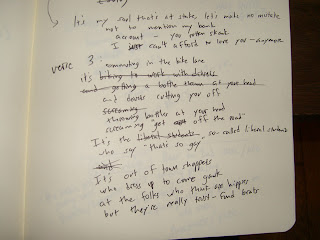 It's my soul that's at stake, let's make no mistake
not to mention my bank
account – you rotten skank
I can't afford to love you – anymore
verse 3: commuting in the bike lane
it's biking to work with drivers
and getting a bottle thrown at your head
and drivers cutting you off
screaming
throwing bottles at your head
screaming "get off the road"
It's the liberal students, so-called liberal students
who say "that's so gay"
It's out of town shoppers
who dress up to come gawk
at the folks who think are hippies
but they're really trust-fund brats